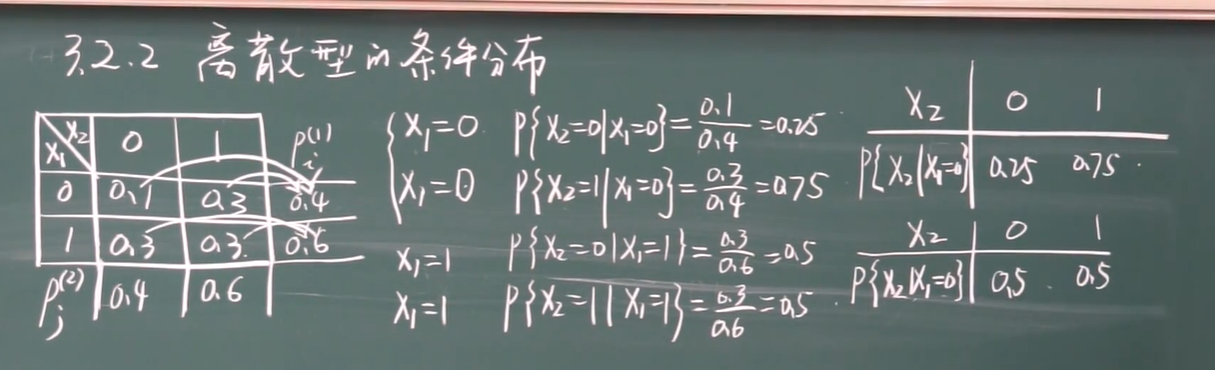 3.2.2 离散型的条件分布
X₁\X₂ 0 1 pᵢ⁽¹⁾
0 0.1 0.3 0.4
1 0.3 0.3 0.6
pⱼ⁽²⁾ 0.4 0.6
X₁=0 P{X₂=0|X₁=0}=0.1/0.4=0.25
X₁=0 P{X₂=1|X₁=0}=0.3/0.4=0.75
X₁=1 P{X₂=0|X₁=1}=0.3/0.6=0.5
X₁=1 P{X₂=1|X₁=1}=0.3/0.6=0.5
X₂ 0 1
P{X₂|X₁=0} 0.25 0.75
X₂ 0 1
P{X₂|X₁=0} 0.5 0.5